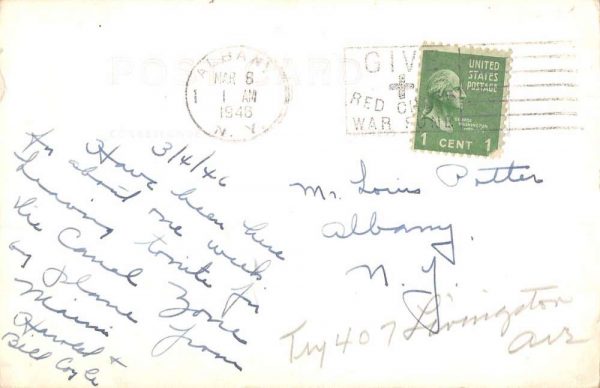 POST CARD
ALBANY
MAR 8
1 AM
1946
N.Y.
GIVE
RED
WAR
UNITED
STATES
POSTAGE
GEORGE
WASHINGTON
1 CENT 1
3/4/46
Have been here
for about one week.
Leaving tonite for
the Canal Zone
by plane from
Miami
Harold &
Bill Coyle
Mr. Louis Potter
Albany
N. Y.
Try 407 Livingston
Ave